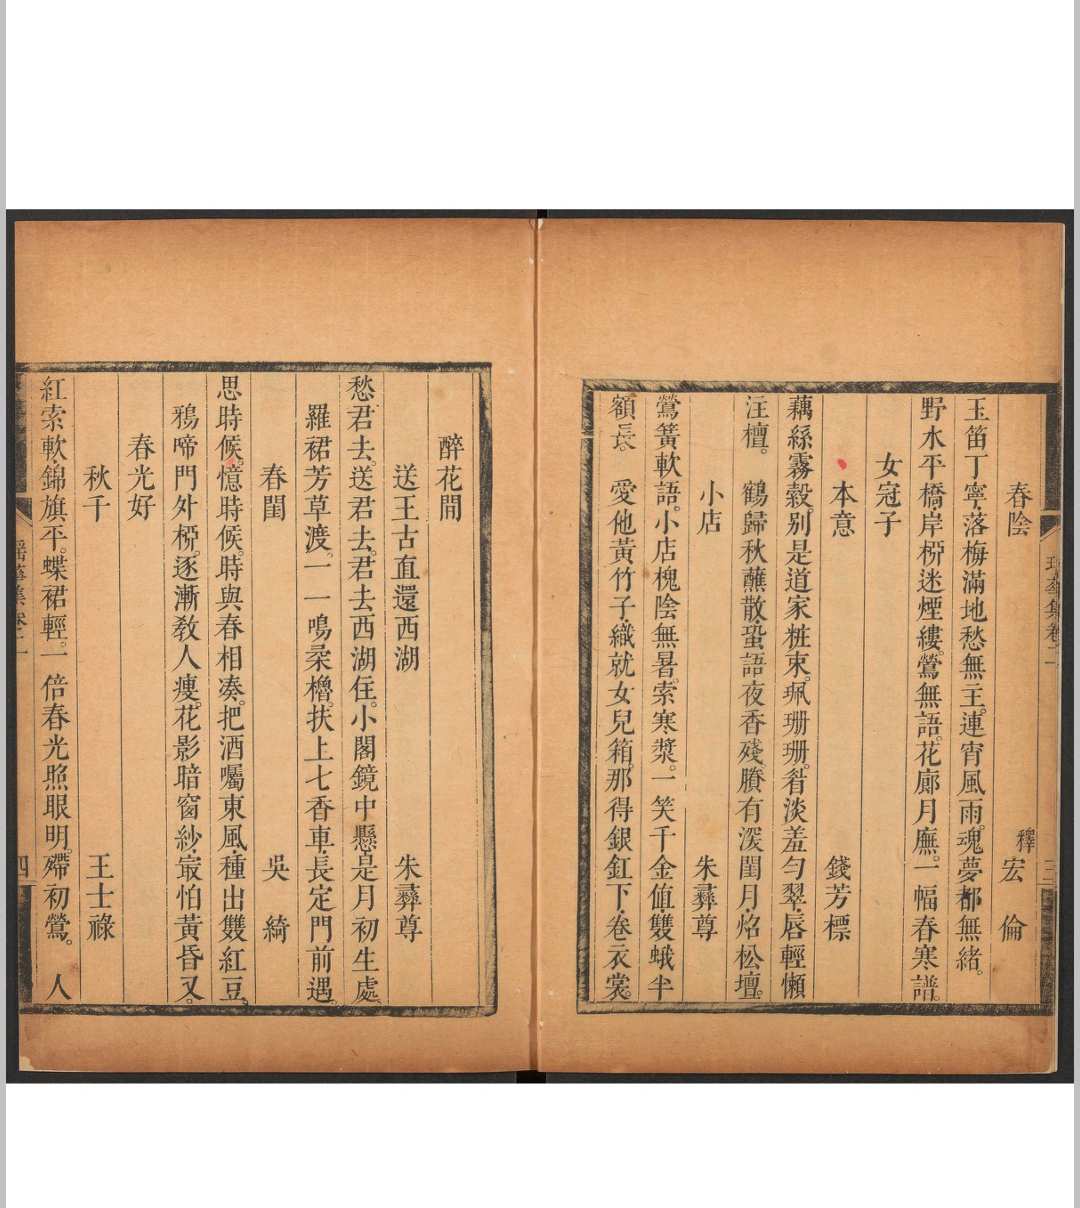 春陰
釋宏倫
玉笛丁寧落梅滿地愁無主。連宵風雨。魂夢都無緒。
野水平橋岸柳迷煙縷。鶯無語。花廊月廡。一幅春寒譜。
女冠子
本意
錢芳標
藕絲霧縠。別是道家粧束。珮珊珊。眉淡羞勻翠脣輕懶
注檀。 鶴歸秋蘸散蛩語夜香殘賸有深閨月焰松壇。
小店
朱彝尊
鶯簧軟語。小店槐陰無暑。索寒漿。一笑千金值雙蛾半
額長。 愛他黃竹子織就女兒箱。那得銀釭下卷衣裳。
瑤華集卷二
三
醉花間
送王古直還西湖
朱彝尊
愁君去。送君去。君去西湖住。小閣鏡中懸是月初生處。
羅裙芳草渡。一一鳴柔櫓。扶上七香車長定門前遇。
春閨
吳綺
思時候。憶時候。時與春相湊。把酒囑東風種出雙紅豆。
鴉啼門外柳。逐漸敎人瘦。花影暗窗紗最怕黃昏又。
春光好
秋千
王士祿
紅索軟錦旗平。蝶裙輕。一倍春光照眼明。殢初鶯。 人
瑤華集卷二
四